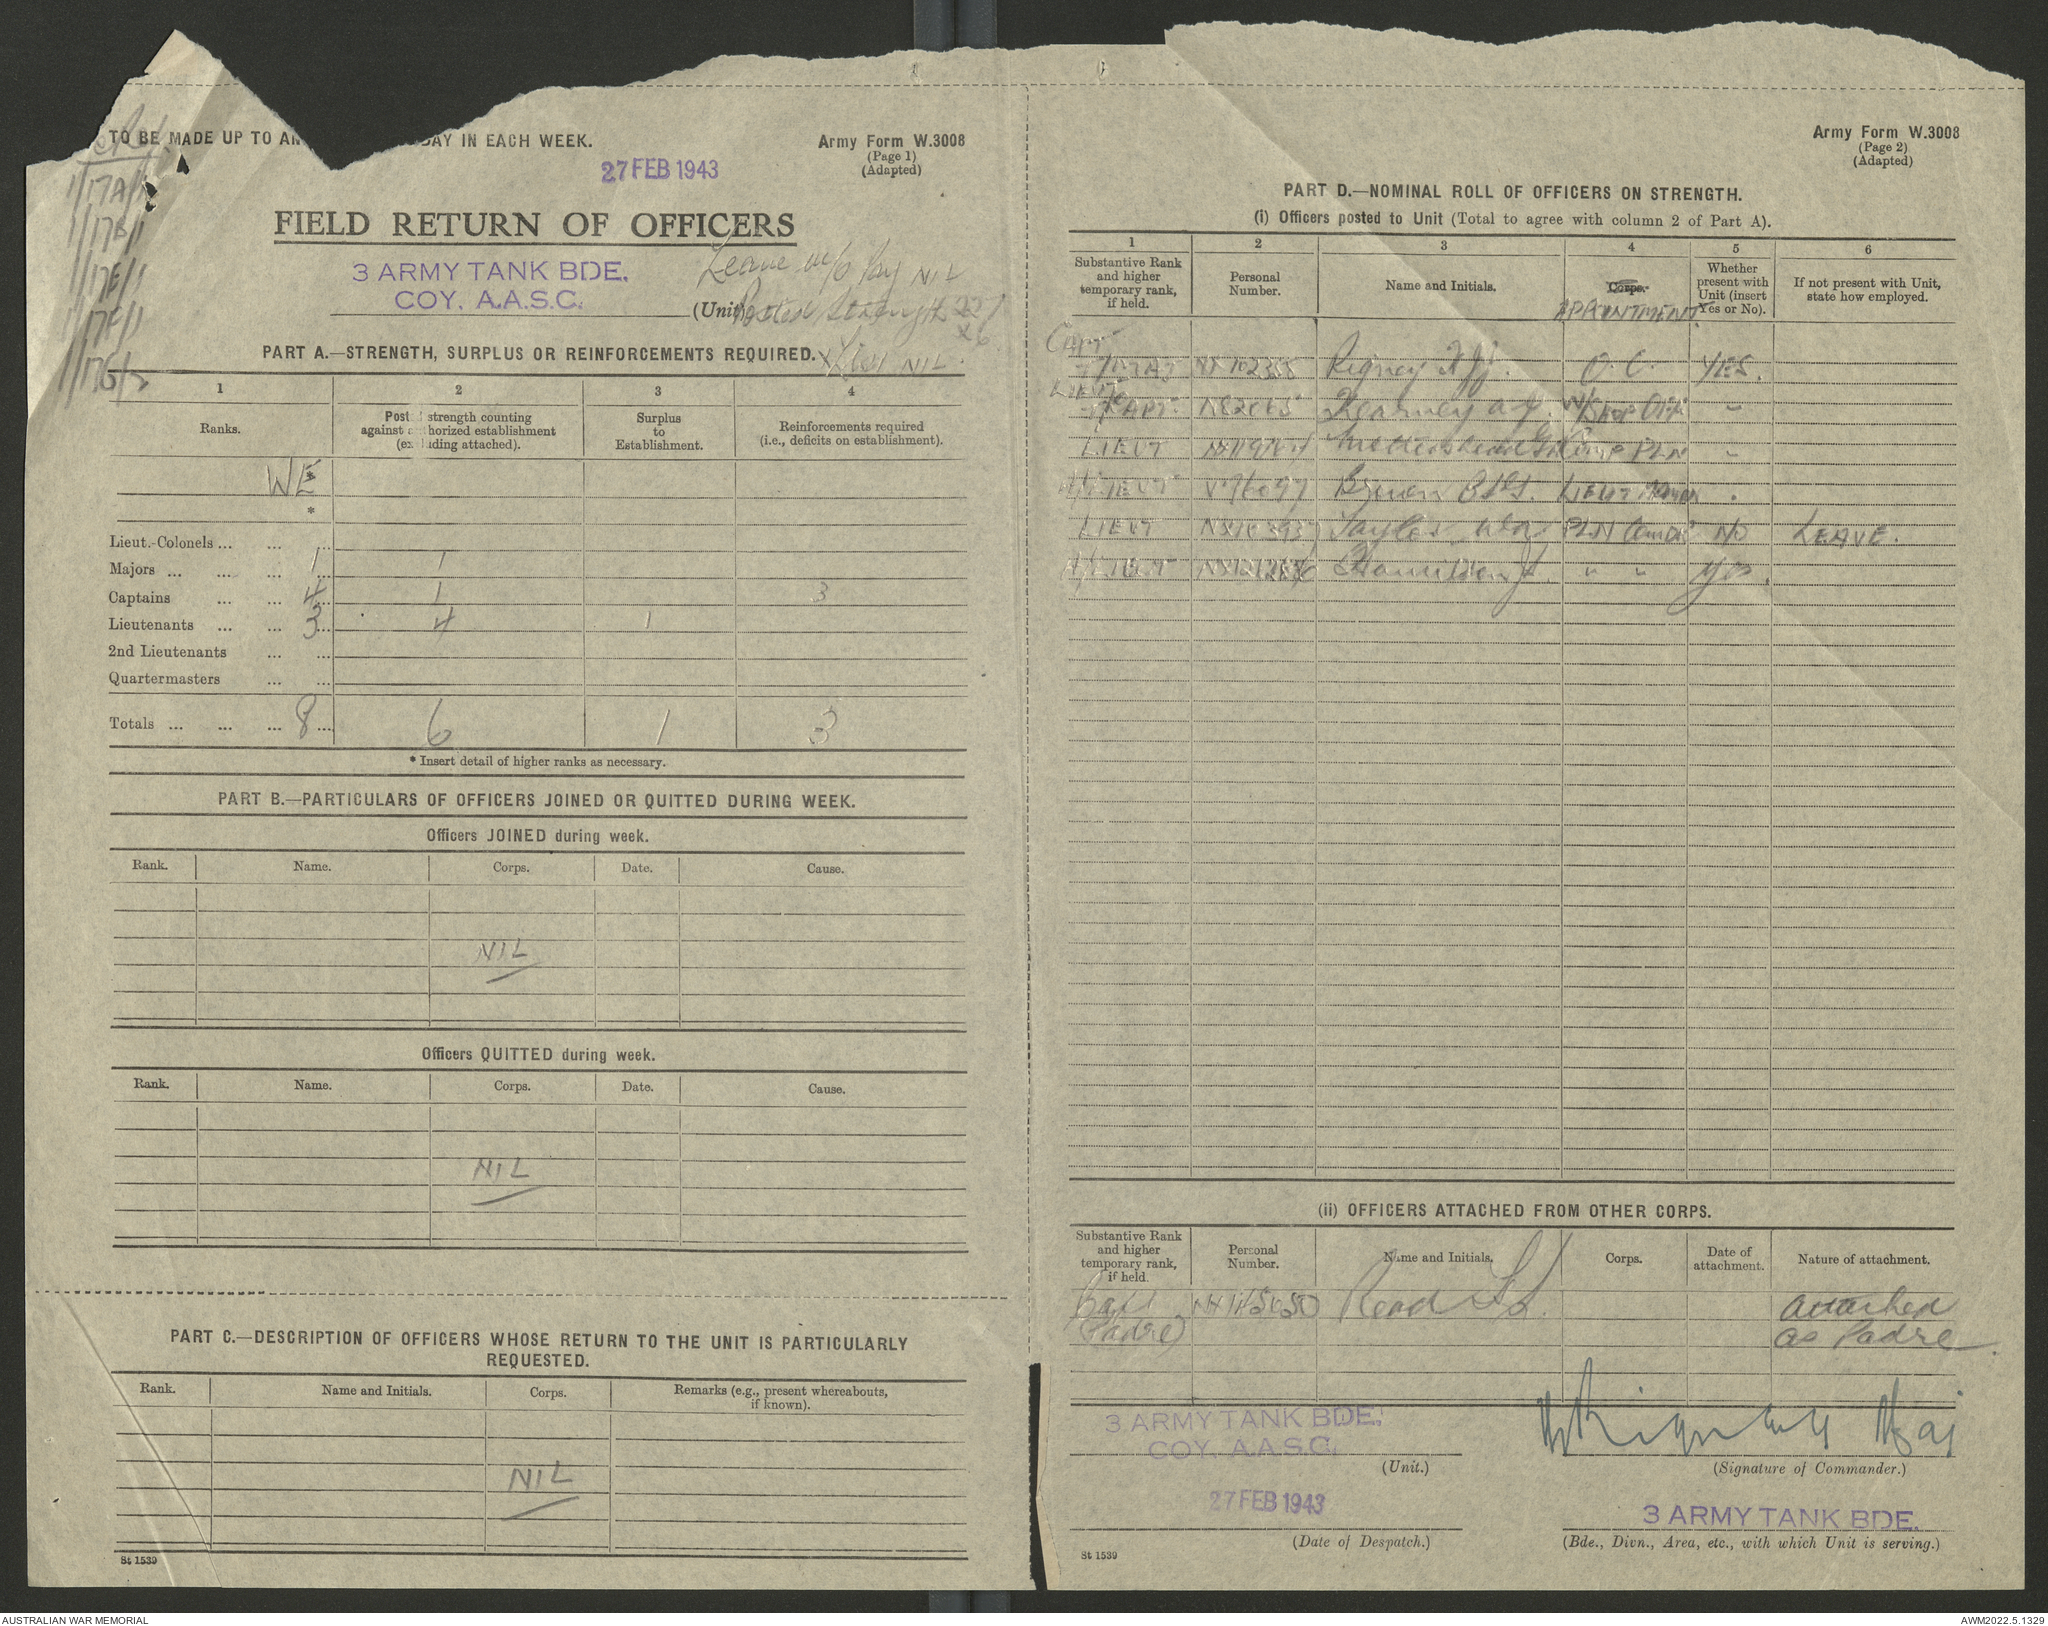 TO BE MADE UP TO AN AY IN EACH WEEK.
Army Form W.3008
(Page 1)
(Adapted)
27 FEB 1943
1/17A/1
1/17B/1
1/17E/1
1/17F/1
FIELD RETURN OF OFFICERS
3 ARMY TANK BDE.
COY. A.A.S.C.
(Unit)
Leave w/o Pay NIL
Posted Strength 227
x6
NIL
PART A.—STRENGTH, SURPLUS OR REINFORCEMENTS REQUIRED.
1 2 3 4
Ranks.
Posted strength counting against authorized establishment (excluding attached).
Surplus to Establishment.
Reinforcements required (i.e., deficits on establishment).
WE *
*
Lieut.-Colonels ... ... ...
Majors ... ... ... 1 1
Captains ... ... 4 1 3
Lieutenants ... ... 3 4 1
2nd Lieutenants ... ...
Quartermasters ... ...
Totals ... ... ... 8 6 1 3
* Insert detail of higher ranks as necessary.
PART B.—PARTICULARS OF OFFICERS JOINED OR QUITTED DURING WEEK.
Officers JOINED during week.
Rank. Name. Corps. Date. Cause.
NIL
Officers QUITTED during week.
Rank. Name. Corps. Date. Cause.
NIL
PART C.—DESCRIPTION OF OFFICERS WHOSE RETURN TO THE UNIT IS PARTICULARLY
REQUESTED.
Rank. Name and Initials. Corps. Remarks (e.g., present whereabouts, if known).
NIL
St 1539
Army Form W.3008
(Page 2)
(Adapted)
PART D.—NOMINAL ROLL OF OFFICERS ON STRENGTH.
(i) Officers posted to Unit (Total to agree with column 2 of Part A).
1 2 3 4 5 6
Substantive Rank and higher temporary rank, if held.
Personal Number.
Name and Initials.
Corps.
APPOINTMENT
Whether present with Unit (insert Yes or No).
If not present with Unit, state how employed.
CAPT
T/MAJ NX102355 Rigney O.C. YES.
LIEUT
T/CAPT Kearney A.J. W/Shop Off "
LIEUT Mothershead PLN "
A/LIEUT V76097 LIEUT
LIEUT NX103937 Taylor PLN Comdr NO LEAVE.
A/LIEUT Hamilton J. " " Yes.
(ii) OFFICERS ATTACHED FROM OTHER CORPS.
Substantive Rank and higher temporary rank, if held.
Personal Number.
Name and Initials.
Corps.
Date of attachment.
Nature of attachment.
Capt Read attached
(Padre) as Padre.
3 ARMY TANK BDE.
COY. A.A.S.C.
(Unit.)
Maj
(Signature of Commander.)
27 FEB 1943
(Date of Despatch.)
3 ARMY TANK BDE.
(Bde., Divn., Area, etc., with which Unit is serving.)
St 1539
AUSTRALIAN WAR MEMORIAL
AWM2022.5.1329